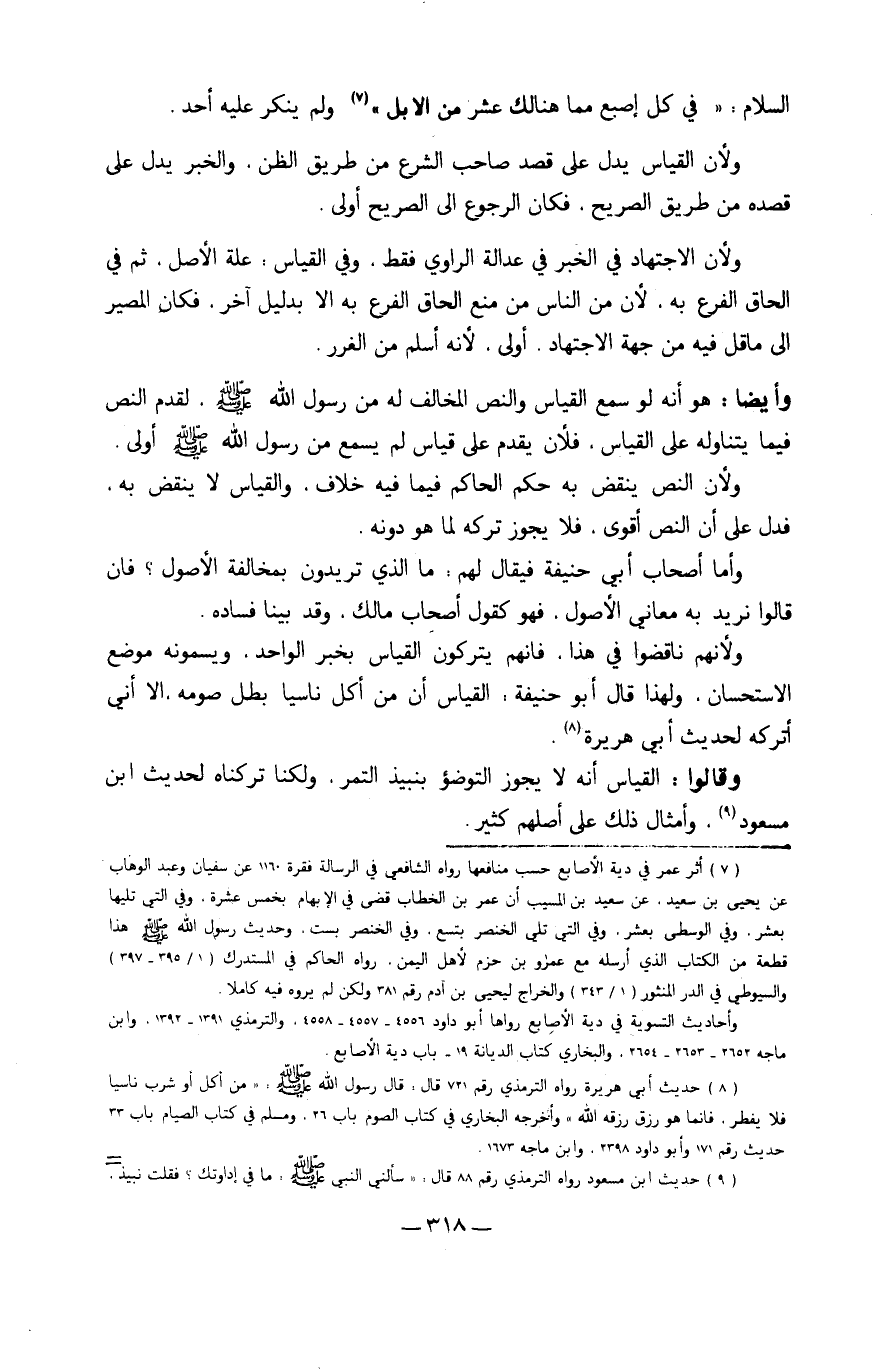 السلام : « في كل إصبع مما هنالك عشر من الابل »(٧) ولم ينكر عليه أحد .
ولأن القياس يدل على قصد صاحب الشرع من طريق الظن ، والخبر يدل على
قصده من طريق الصريح ، فكان الرجوع الى الصريح أولى .
ولأن الاجتهاد في الخبر في عدالة الراوي فقط ، وفي القياس : علة الأصل ، ثم في
الحاق الفرع به ، لأن من الناس من منع الحاق الفرع به الا بدليل آخر ، فكان المصير
الى ماقل فيه من جهة الاجتهاد . أولى ، لأنه أسلم من الغرر .
وأيضا : هو أنه لو سمع القياس والنص المخالف له من رسول الله ﷺ ، لقدم النص
فيما يتناوله على القياس ، فلأن يقدم على قياس لم يسمع من رسول الله ﷺ أولى .
ولأن النص ينقض به حكم الحاكم فيما فيه خلاف ، والقياس لا ينقض به ،
فدل على أن النص أقوى ، فلا يجوز تركه لما هو دونه .
وأما أصحاب أبي حنيفة فيقال لهم : ما الذي تريدون بمخالفة الأصول ؟ فان
قالوا نريد به معاني الأصول ، فهو كقول أصحاب مالك ، وقد بينا فساده .
ولأنهم ناقضوا في هذا ، فانهم يتركون القياس بخبر الواحد ، ويسمونه موضع
الاستحسان ، ولهذا قال أبو حنيفة : القياس أن من أكل ناسيا بطل صومه ،الا أني
أتركه لحديث أبي هريرة(٨) .
وقالوا : القياس أنه لا يجوز التوضؤ بنبيذ التمر ، ولكنا تركناه لحديث ابن
مسعود(٩) ، وأمثال ذلك على أصلهم كثير .
( ٧ ) أثر عمر في دية الأصابع حسب منافعها رواه الشافعي في الرسالة فقرة ١١٦٠ عن سفيان وعبد الوهاب
عن يحيى بن سعيد ، عن سعيد بن المسيب أن عمر بن الخطاب قضى في الإبهام بخمس عشرة ، وفي التي تليها
بعشر ، وفي الوسطى بعشر ، وفي التي تلي الخنصر بتسع ، وفي الخنصر بست ، وحديث رسول الله ﷺ هذا
قطعة من الكتاب الذي أرسله مع عمرو بن حزم لأهل اليمن ، رواه الحاكم في المستدرك ( ١ / ٣٩٥ ـ ٣٩٧ )
والسيوطي في الدر المنثور ( ١ / ٣٤٣ ) والخراج ليحيى بن آدم رقم ٣٨١ ولكن لم يروه فيه كاملا .
وأحاديث التسوية في دية الأصابع رواها أبو داود ٤٥٥٦ ـ ٤٥٥٧ ـ ٤٥٥٨ ، والترمذي ١٣٩١ ـ ١٣٩٢ ، وابن
ماجه ٢٦٥٢ ـ ٢٦٥٣ ـ ٢٦٥٤ ، والبخاري كتاب الديانة ١٩ ـ باب دية الأصابع .
( ٨ ) حديث أبي هريرة رواه الترمذي رقم ٧٢١ قال : قال رسول الله ﷺ : « من أكل أو شرب ناسيا
فلا يفطر ، فانما هو رزق رزقه الله » وأخرجه البخاري في كتاب الصوم باب ٢٦ ، ومسلم في كتاب الصيام باب ٣٣
حديث رقم ١٧١ وأبو داود ٢٣٩٨ ، وابن ماجه ١٦٧٣ .
( ٩ ) حديث ابن مسعود رواه الترمذي رقم ٨٨ قال : « سألني النبي ﷺ : ما في إداوتك ؟ فقلت نبيذ ، =
— ٣١٨ —